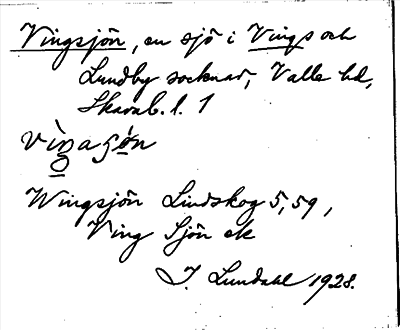 Vingsjön, en sjö i Vings och
Lundby socknar, Valle hd,
Skarab. l. 1
Wingsjön Lindskog 5, 59,
Ving Sjön ek
J. Lundahl 1928.